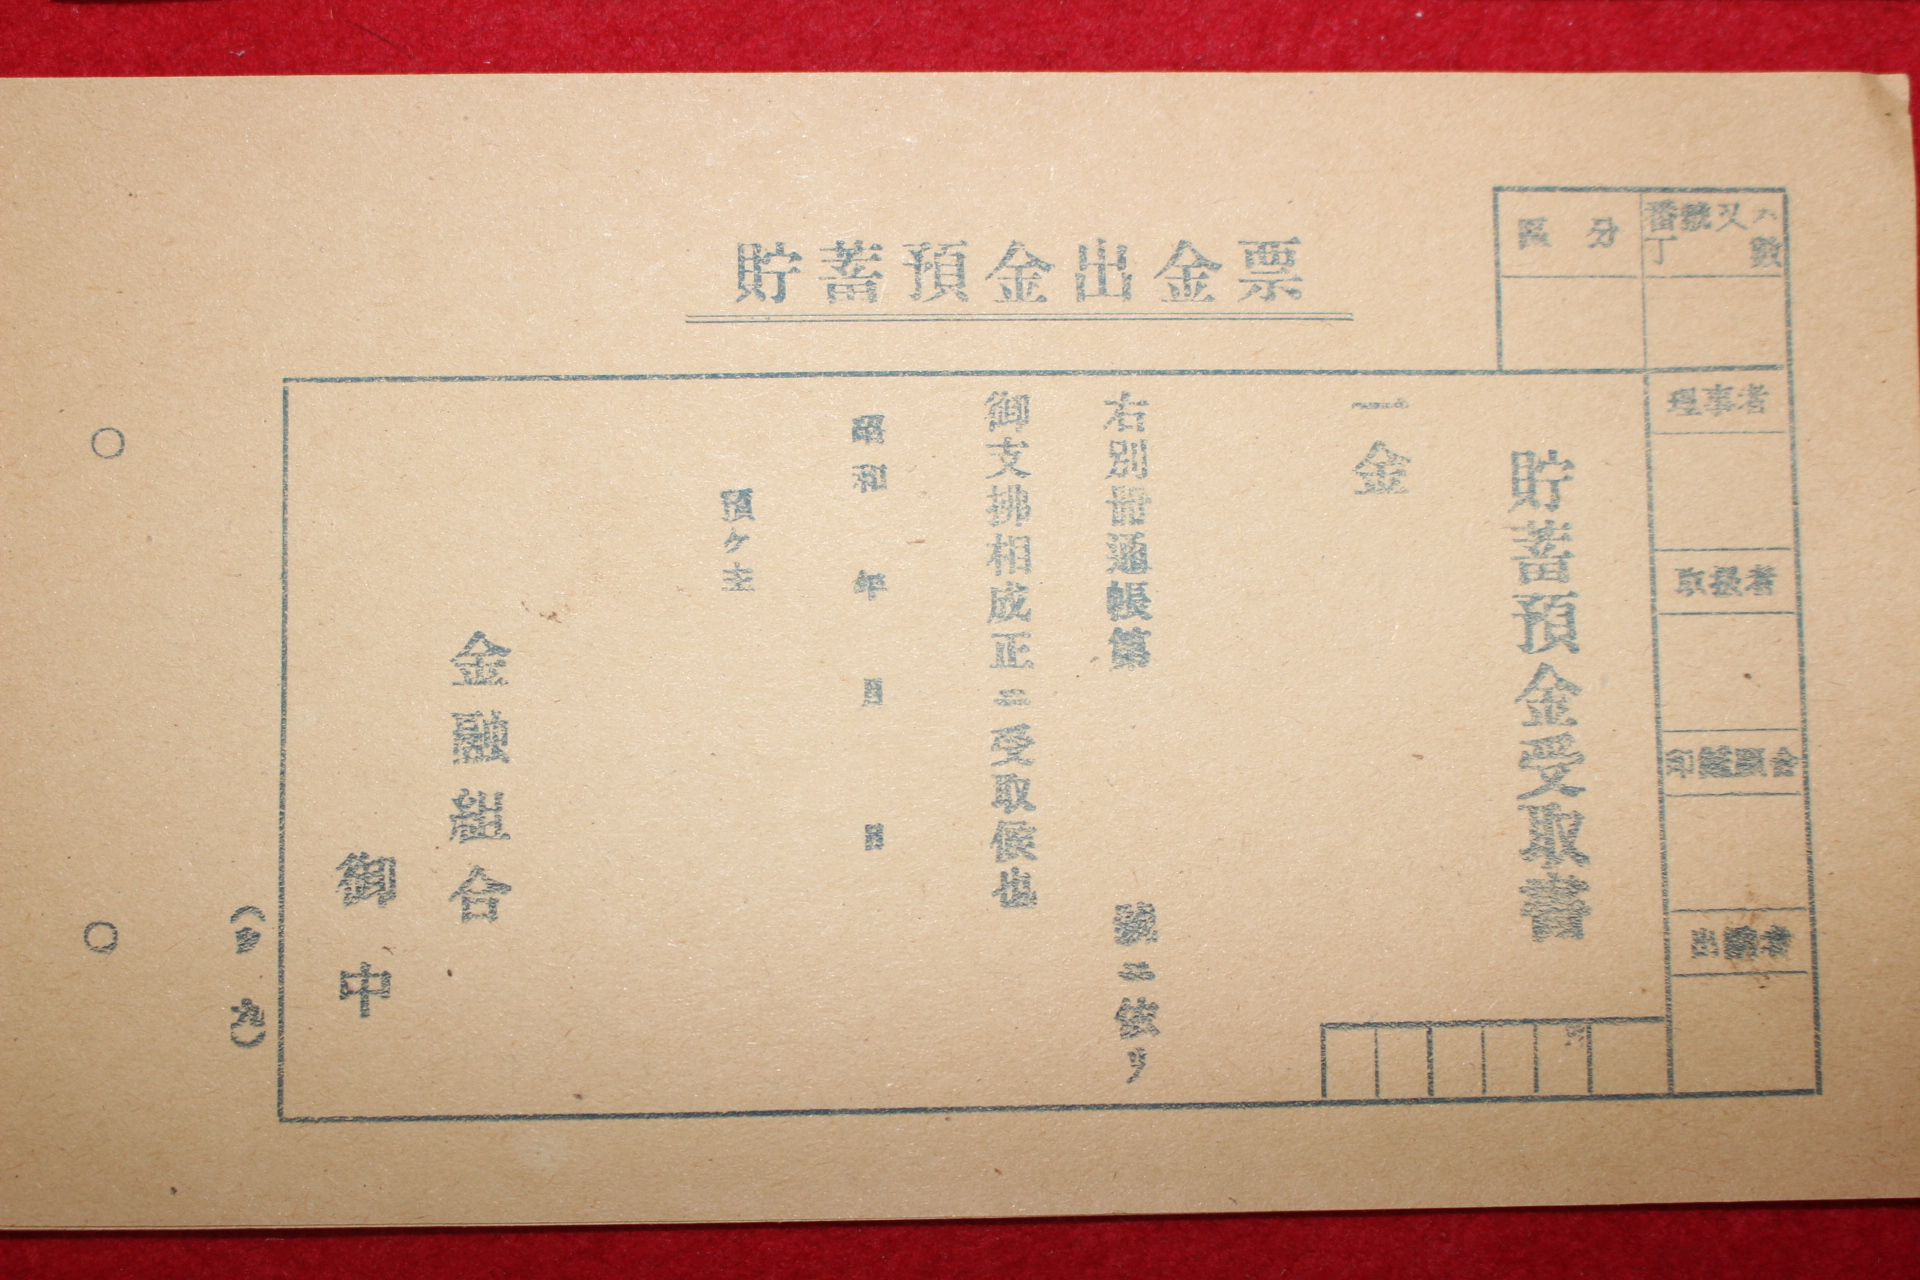 貯蓄預金出金票
番號又ハ
丁數
區分
理事者
取扱者
印鑑照合
出納者
貯蓄預金受取書
一金
右別冊通帳第 號ニ依リ
御支拂相成正ニ受取候也
昭和 年 月 日
預ケ主
金融組合
御中